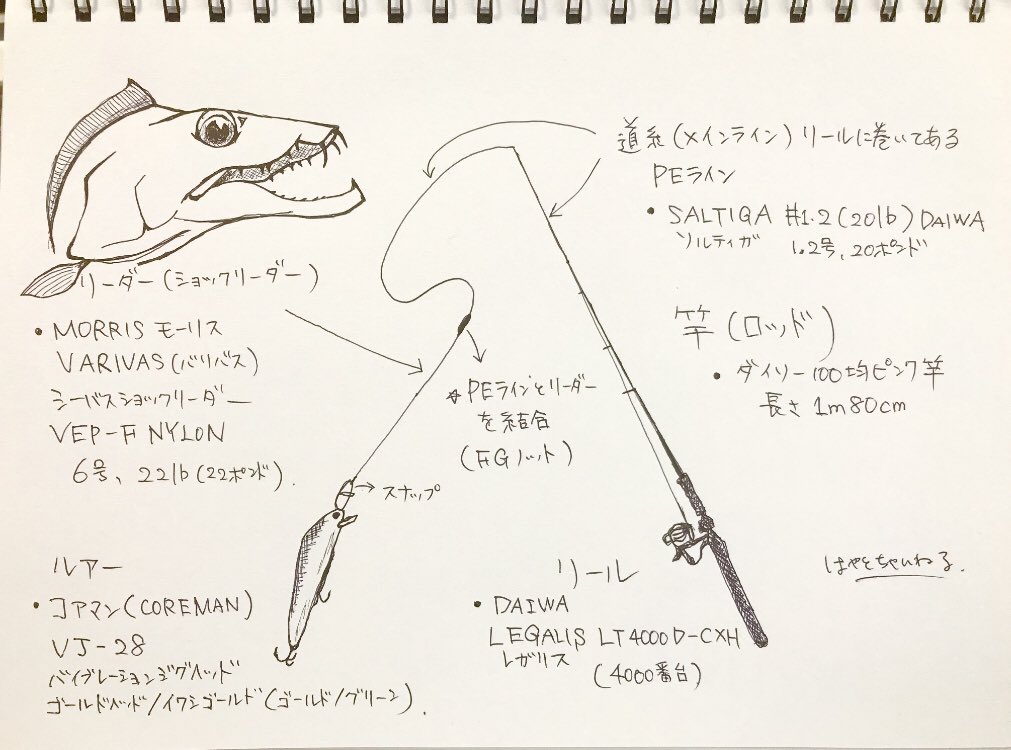 道糸(メインライン)リールに巻いてある
PEライン
• SALTIGA #1.2(20lb)DAIWA
ソルティガ 1.2号、20ポンド
竿(ロッド)
• ダイソー100均ピンク竿
長さ 1m80cm
リーダー(ショックリーダー)
• MORRIS モーリス
VARIVAS(バリバス)
シーバスショックリーダー
VEP-F NYLON
6号、22lb(22ポンド).
☆PEラインとリーダー
を結合
(FGノット)
→スナップ
ルアー
• コアマン(COREMAN)
VJ-28
バイブレーションジグヘッド
ゴールドヘッド/イワシゴールド(ゴールド/グリーン).
リール
• DAIWA
LEGALIS LT4000D-CXH
レガリス
(4000番台)
はやとちゃいねる.